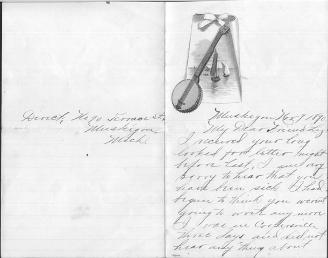 Direct, No 90 Terrace St,
Muskegon
Mich.
Muskegon Nov 9
My Dear Friend,
I received your long
looked for letter night
before last, I was very
sorry to hear that you
have been sick I had
begun to think you weren't
going to write any more
I was in
three days and did not
hear any thing about